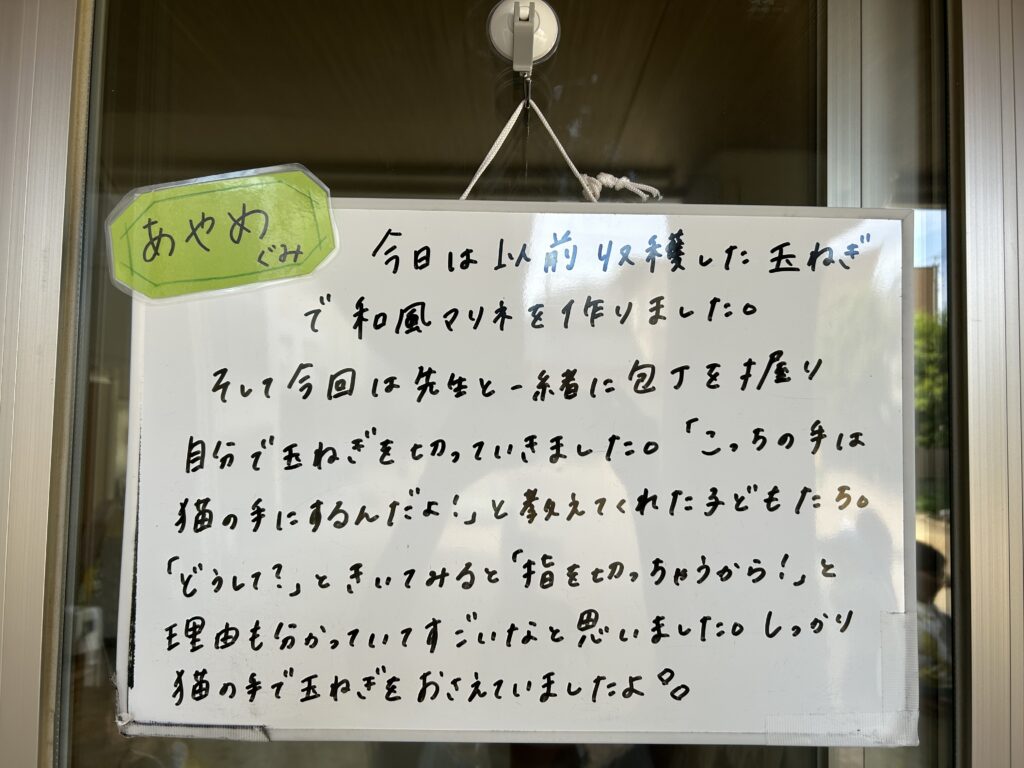 あやめ
ぐみ
今日は以前収穫した玉ねぎ
で和風マリネを作りました。
そして今回は先生と一緒に包丁を握り
自分で玉ねぎを切っていきました。「こっちの手は
猫の手にするんだよ!」と教えてくれた子どもたち。
「どうして?」ときいてみると「指を切っちゃうから!」と
理由も分かっていてすごいなと思いました。しっかり
猫の手で玉ねぎをおさえていましたよ。